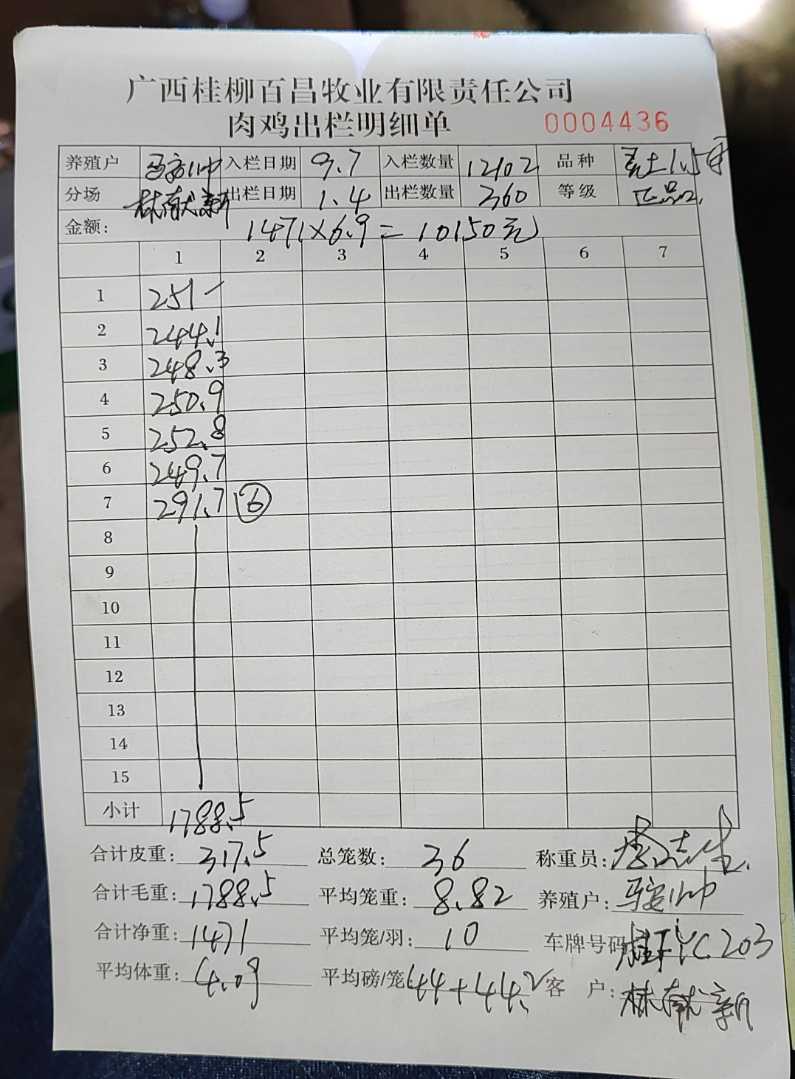 广西桂柳百昌牧业有限责任公司
肉鸡出栏明细单 0004436
养殖户 入栏日期 9.7 入栏数量 12102 品种 土1.5
分场 林献新 出栏日期 1.4 出栏数量 360 等级 正品
金额: 1471×6.9=10150元
1 2 3 4 5 6 7
1 251-
2 244.1
3 248.3
4 250.9
5 252.8
6 249.7
7 291.7 ⑥
8
9
10
11
12
13
14
15
小计 1788.5
合计皮重: 317.5 总笼数: 36 称重员:
合计毛重: 1788.5 平均笼重: 8.82 养殖户:
合计净重: 1471 平均笼/羽: 10 车牌号码 桂 YC203
平均体重: 4.09 平均磅/笼 44+44.2 客 户: 林献新